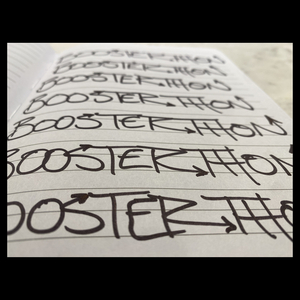 BOOSTERTHON
BOOSTERTHON
BOOSTERTHON
BOOSTERTHON
BOOSTERTHON
BOOSTERTHON
OOSTERTHO